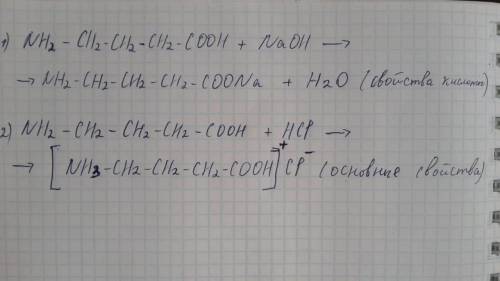 1) NH₂ – CH₂ – CH₂ – CH₂ – COOH + NaOH ⟶
→ NH₂ – CH₂ – CH₂ – CH₂ – COONa + H₂O (свойства кислот)
2) NH₂ – CH₂ – CH₂ – CH₂ – COOH + HCl ⟶
→ [NH₃–CH₂–CH₂–CH₂–COOH]⁺Cl⁻ (основные свойства)